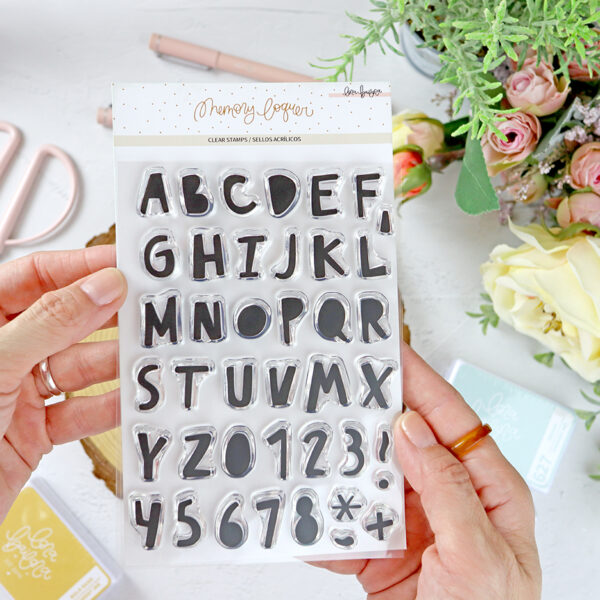 Memory loquer
Lora Bailora
CLEAR STAMPS / SELLOS ACRÍLICOS
ABCDEF
GHIJKL
MNOPQR
STUVMX
YZ0123!
45678*+